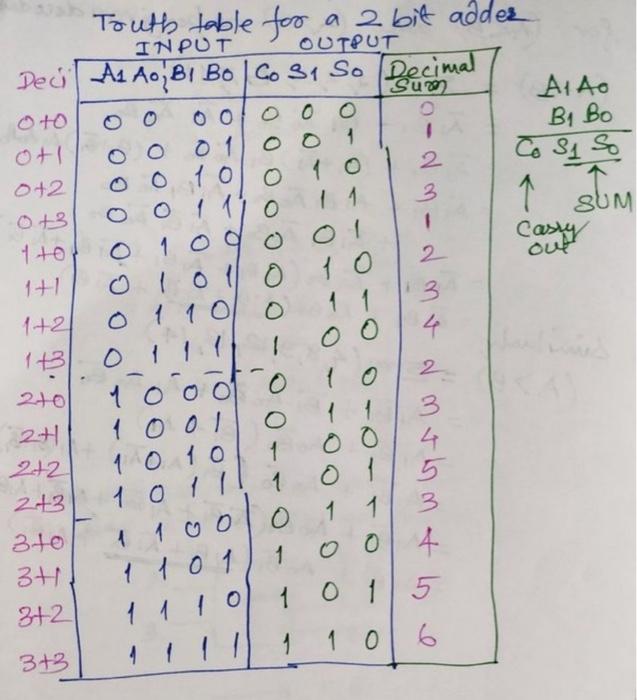 Truth table for a 2 bit adder
INPUT OUTPUT
Deci A1 A0 B1 B0 C0 S1 S0 Decimal Sum
0+0 0 0 0 0 0 0 0 0
0+1 0 0 0 1 0 0 1 1
0+2 0 0 1 0 0 1 0 2
0+3 0 0 1 1 0 1 1 3
1+0 0 1 0 0 0 0 1 1
1+1 0 1 0 1 0 1 0 2
1+2 0 1 1 0 0 1 1 3
1+3 0 1 1 1 1 0 0 4
2+0 1 0 0 0 0 1 0 2
2+1 1 0 0 1 0 1 1 3
2+2 1 0 1 0 1 0 0 4
2+3 1 0 1 1 1 0 1 5
3+0 1 1 0 0 0 1 1 3
3+1 1 1 0 1 1 0 0 4
3+2 1 1 1 0 1 0 1 5
3+3 1 1 1 1 1 1 0 6
A1 A0
B1 B0
C0 S1 S0
SUM
Carry
out